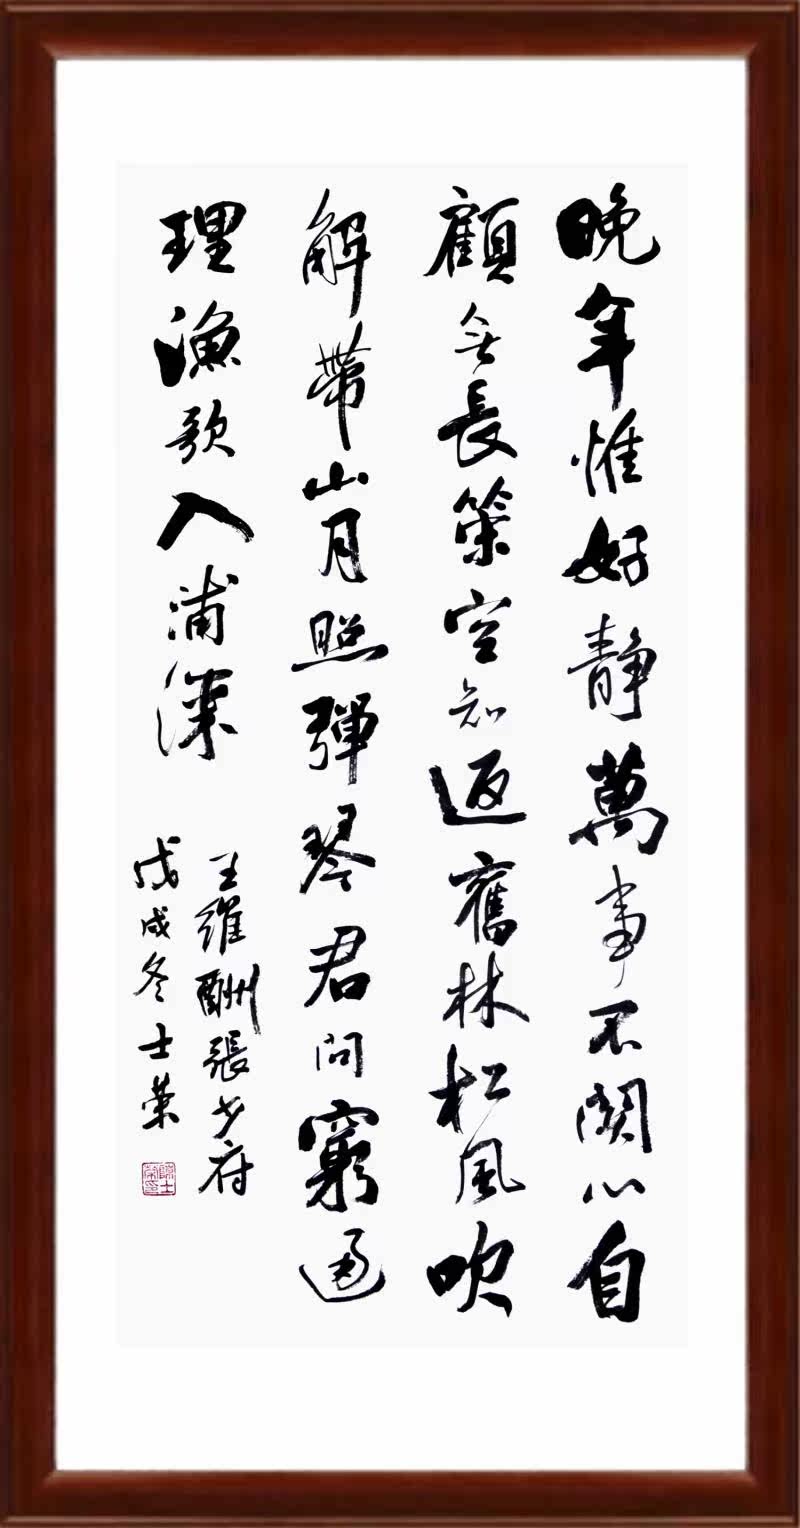 晚年惟好靜萬事不關心自
顧無長策空知返舊林松風吹
解帶山月照彈琴君問窮通
理漁歌入浦深
王維酬張少府
戊戌冬士榮